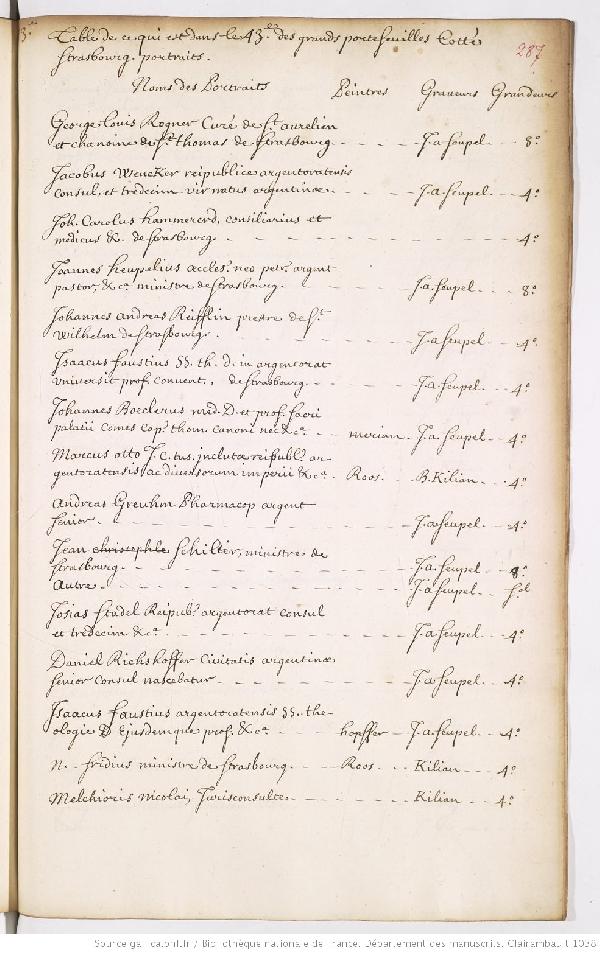 Table de ce qui est dans le 43.e des grands portefeuilles Cotté
Strasbourg. portraits.
287
Noms des Portraits Peintres Graveurs Grandeurs
George Louis Rogner Curé de St. aurelien
et chanoine de St. thomas de Strasbourg - - J. a. Seupel - - 8.o
Jacobus Wencker reipublice argentoratensis
Consul, et tredecim vir natus argentinæ - - J. a. Seupel - - 4.o
Joh. Carolus hammererd, consiliarius et
medicus &. de Strasbourg. - - 4.o
Joannes heupelius eccles. neo petr. argent
pastor, &c. ministre de Strasbourg. - - J. a. Seupel - - 8.o
Johannes andreas Reifflin prestre de St.
Wilhelm de Strasbourg. - - J. a. Seupel - - 4.o
Isaacus faustius SS. th. D. in argentorat
Universit prof. convent. de Strasbourg. - - J. a. Seupel - - 4.o
Johannes Boeclerus med. D. et prof.
palatii Comes Cap. thom. Canoni &c. - - merian - J. a. Seupel - - 4.o
Marcus otto J. C. tus. inclutæ reipubl. ar-
gentoratensis, ac diversorum imperii &c. - - Roos - - B. Kilian - - 4.o
Andreas Greuhm Pharmacop argent
Senior. - - J. a. Seupel - - 4.o
Jean christophle Schilter, ministre de
Strasbourg. - - J. a. Seupel - - 8.o
autre. - - J. a. Seupel - - fol
Josias Stadel Reipub. argentorat consul
et tredecim &c. - - J. a. Seupel - - 4.o
Daniel Richshoffer Civitatis argentinæ
Senior Consul nascebatur - - J. a. Seupel - - 4.o
Isaacus faustius argentoratensis SS. the-
ologie D Ejusdemque prof. &c. - - hopffer - J. a. Seupel - - 4.o
N. - fridius ministre de Strasbourg - - Roos - - Kilian - - 4.o
Melchioris Nicolai, Jurisconsulte - - Kilian - - 4.o
Source gallica.bnf.fr / Bibliothèque nationale de France. Département des manuscrits. Clairambault 1038